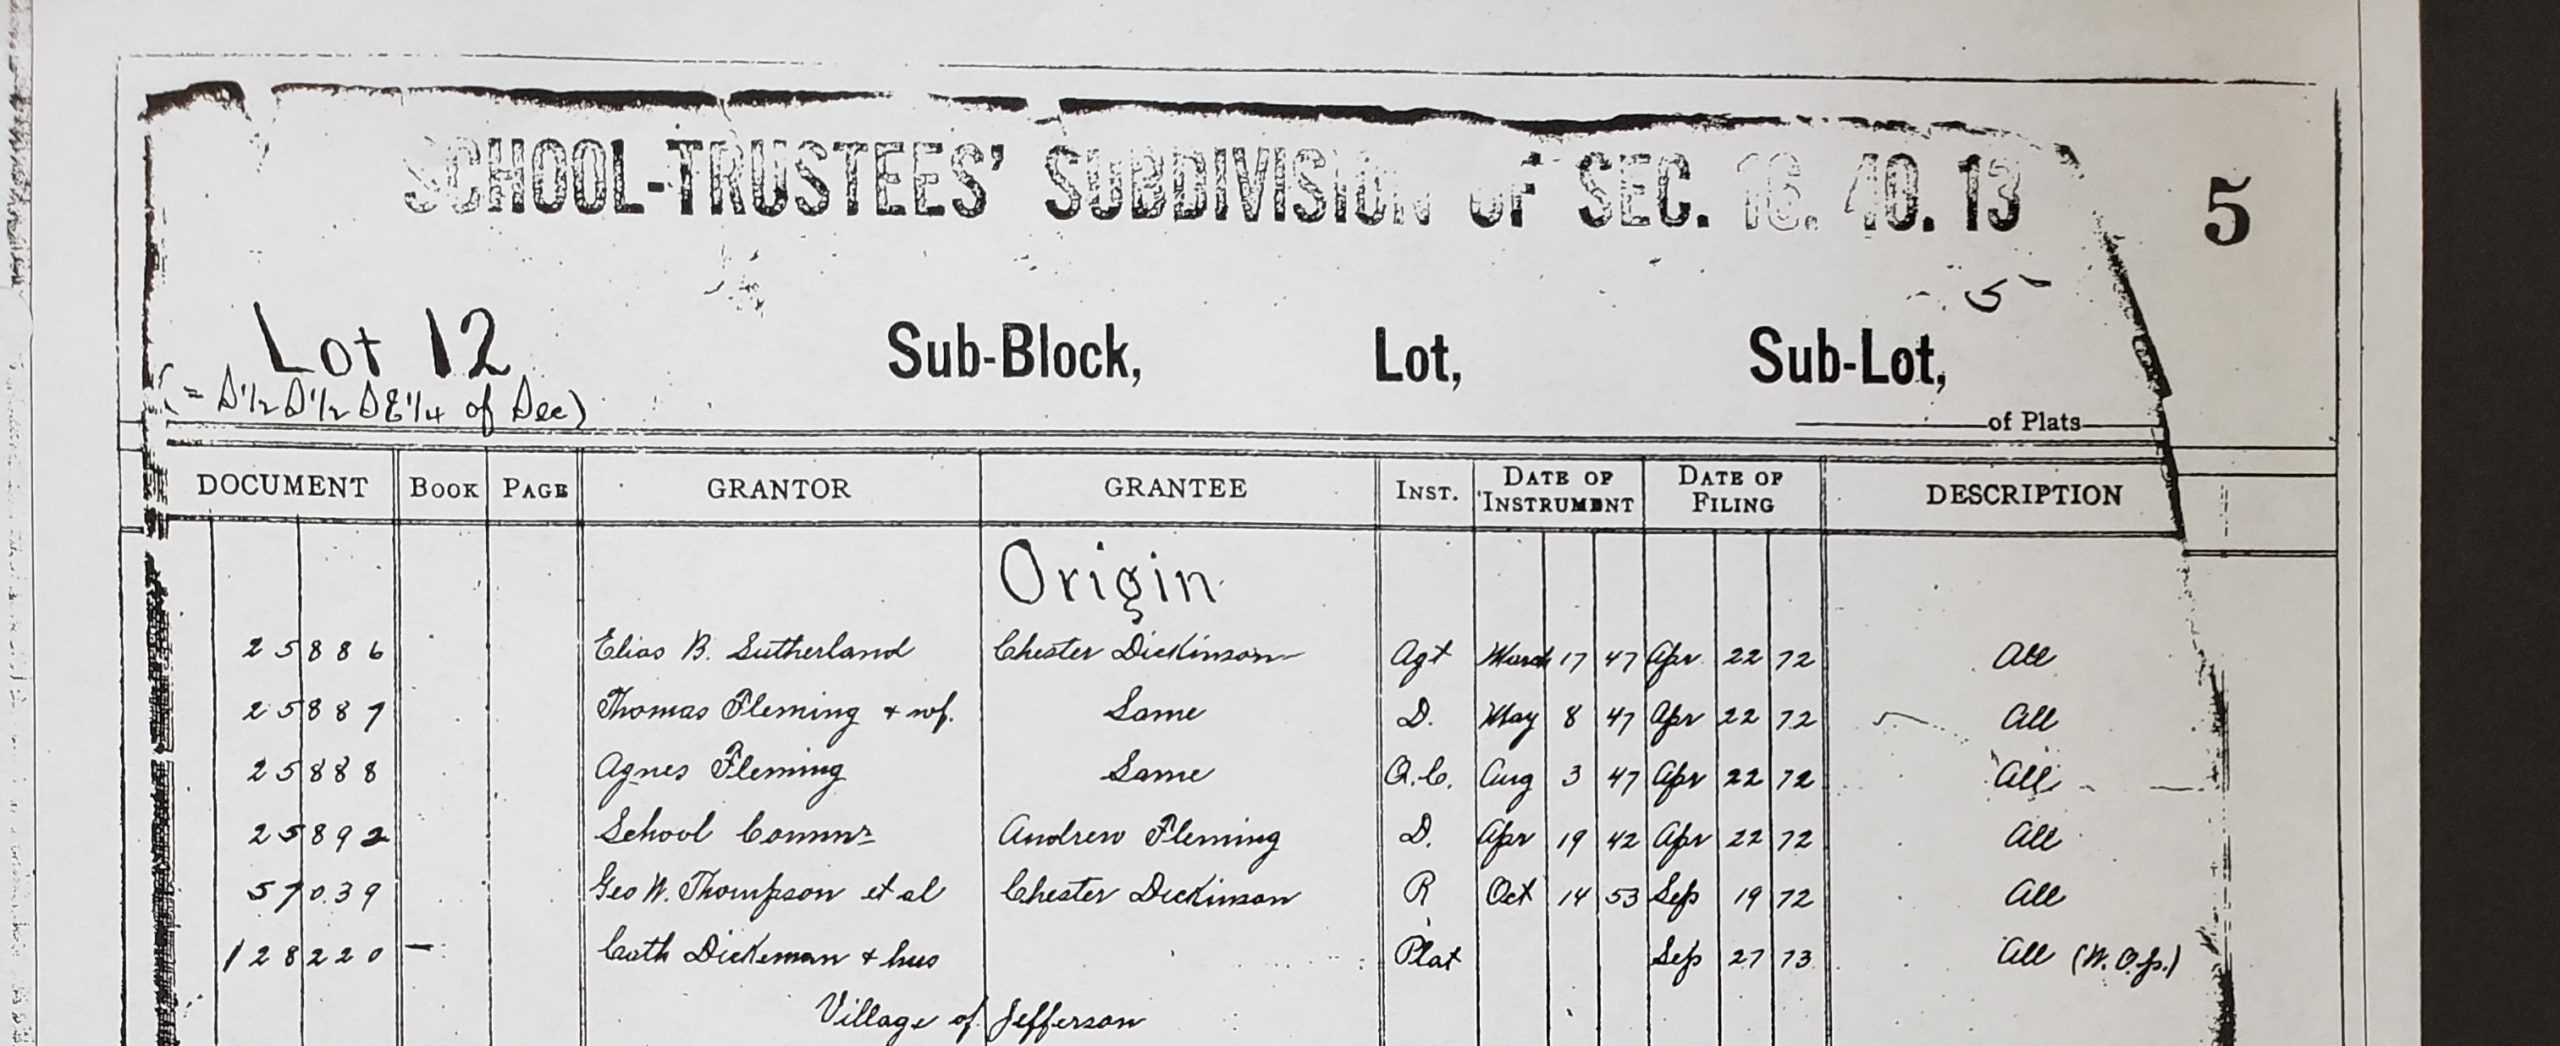 SCHOOL-TRUSTEES' SUBDIVISION OF SEC. 16. 40. 13
5
5
Lot 12 Sub-Block, Lot, Sub-Lot,
(= S 1/2 S 1/2 S E 1/4 of Sec)
of Plats
DOCUMENT BOOK PAGE GRANTOR GRANTEE INST. DATE OF INSTRUMENT DATE OF FILING DESCRIPTION
Origin
25886 Elias B. Sutherland Chester Dickinson Agt March 17 47 Apr 22 72 All
25887 Thomas Fleming & wf. Same D. May 8 47 Apr 22 72 All
25888 Agnes Fleming Same Q.C. Aug 3 47 Apr 22 72 All
25892 School Commrs Andrew Fleming D. Apr 19 42 Apr 22 72 All
57039 Geo W. Thompson et al Chester Dickinson R Oct 14 53 Sep 19 72 All
128220 — Cath Dickeman & hus Plat Sep 27 73 All (W.O.p.)
Village of Jefferson